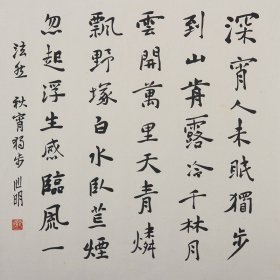 深宵人未眠獨步
到山肩露冷千林月
雲開萬里天青燐
飄野塚白水臥荒煙
忽起浮生感臨風一
泫然 秋宵獨步 明